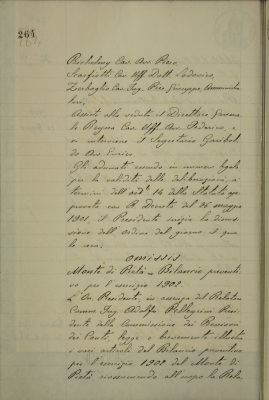 264
Rechedury Cav. Avv. Piero,
Scarfiotti Cav. Uff. Dott. Lodovico,
Zuboglio Cav. Ing. Pier Giuseppe, Commenda-
tori.
Assiste alla seduta il Direttore Genera-
le Regna Cav. Uff. Avv. Federico, e
vi interviene il Segretario Garibal-
do Avv. Enrico.
Gli adunati essendo in numero legale
per la validità delle deliberazioni, a
termini dell'art. 14 dello Statuto ap-
provato con R. Decreto del 26 maggio
1901, il Presidente inizia la discus-
sione dell'ordine del giorno il qua-
le reca:
omissis
Monte di Pietà - Bilancio preventi-
vo per l'esercizio 1902.
L'On. Presidente, in assenza del Relatore
Comm. Ing. Adolfo Pellegrini Presi-
dente della Commissione dei Revisori
dei Conti, legge e brevemente illustra
i vari articoli del Bilancio preventivo
per l'esercizio 1902 del Monte di
Pietà riassumendo all'uopo la Rela-